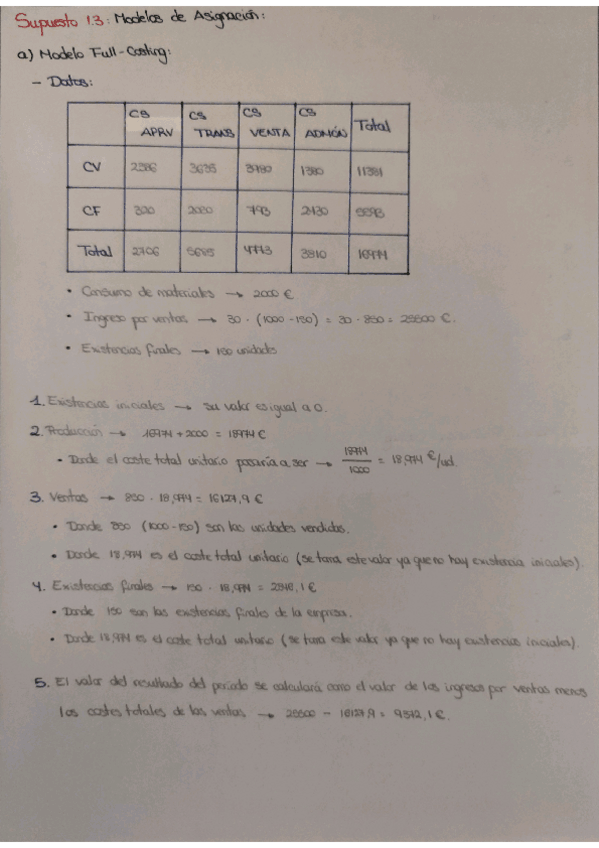 Supuesto 1.3: Modelos de Asignación:
a) Modelo Full-Costing:
- Datos:
CS APRV CS TRANS CS VENTA CS ADMÓN Total
CV 2386 3635 3980 1380 11381
CF 320 2050 793 2430 5593
Total 2706 5685 4773 3810 16974
• Consumo de materiales → 2000 €
• Ingreso por ventas → 30 · (1000 - 150) = 30 · 850 = 25500 €.
• Existencias finales → 150 unidades
1. Existencias iniciales → su valor es igual a 0.
2. Producción → 16974 + 2000 = 18974 €
• Donde el coste total unitario pasaría a ser → 18974 / 1000 = 18,974 €/ud.
3. Ventas → 850 · 18,974 = 16127,9 €
• Donde 850 (1000 - 150) son las unidades vendidas.
• Donde 18,974 es el coste total unitario (se toma este valor ya que no hay existencia iniciales).
4. Existencias finales → 150 · 18,974 = 2846,1 €
• Donde 150 son las existencias finales de la empresa.
• Donde 18,974 es el coste total unitario (se toma este valor ya que no hay existencias iniciales).
5. El valor del resultado del periodo se calculará como el valor de los ingresos por ventas menos
los costes totales de las ventas → 25500 - 16127,9 = 9372,1 €.